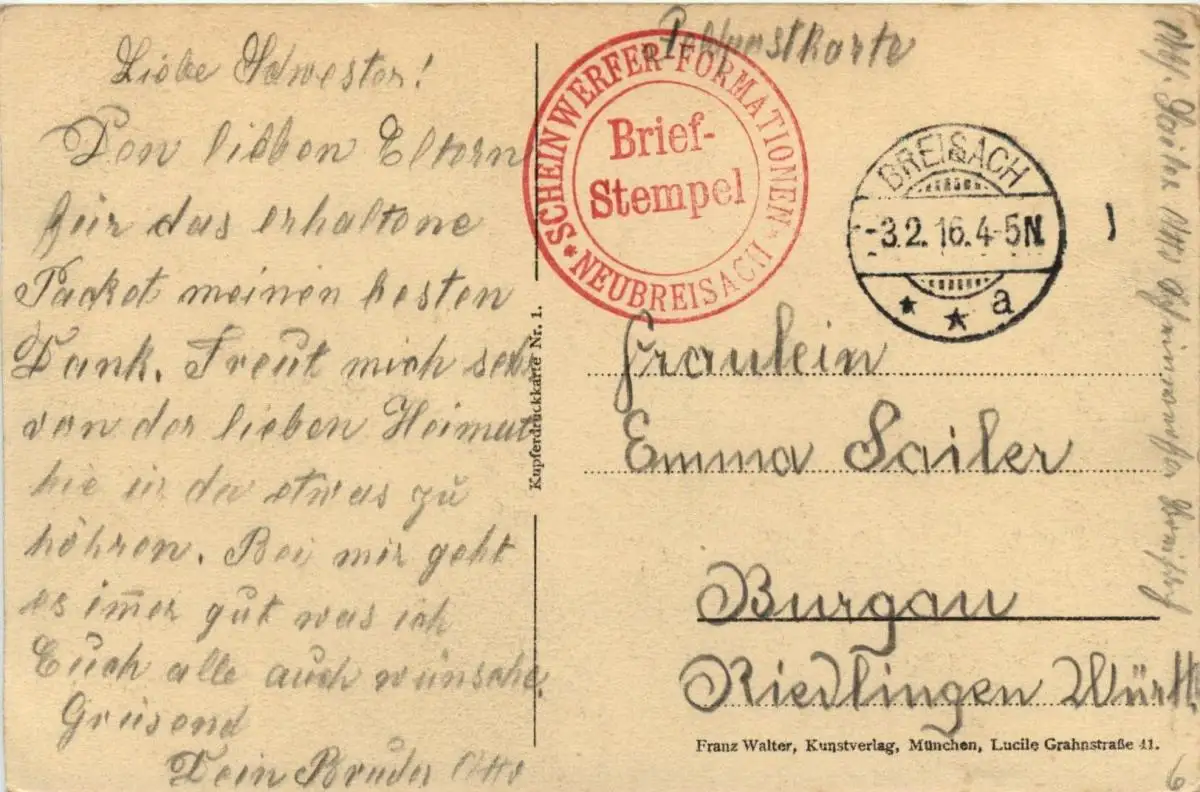 Feldpostkarte
Liebe Schwester!
Den lieben Eltern
für das erhaltene
Packet meinen besten
Dank. Freut mich sehr
von der lieben Heimat
hie u. da etwas zu
höhren. Bei mir geht
es im̅er gut was ich
Euch alle auch wünsche
Grüsend
Dein Bruder Otto
SCHEINWERFER-FORMATIONEN
* NEUBREISACH *
Brief-
Stempel
BREISACH
-3.2.16.4-5N.
* * a
Kupferdruckkarte Nr. 1.
Fräulein
Emma Sailer
Burgau
Riedlingen Württ.
Franz Walter, Kunstverlag, München, Lucile Grahnstraße 41.
Sailer Otto
6